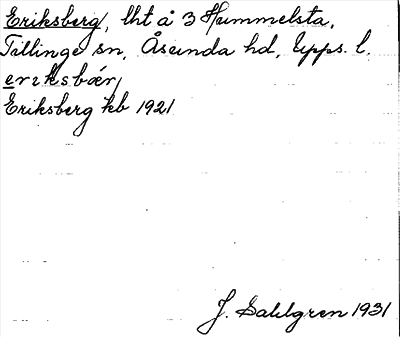 Eriksberg, lht å 3 Hummelsta,
Tillinge sn, Åsunda hd, Upps. l.
erıksbær̨
Eriksberg kb 1921
J. Sahlgren 1931